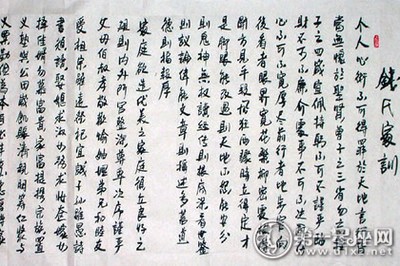 錢氏家訓
个人心術不可得罪于天地言行皆
當無愧於聖賢曾子之三省勿忘程
子之四箴宜佩持躬不可不謹嚴臨
財不可不廉介處事不可不決斷存
心不可不寬厚盡前行者地步窄向
後看者眼界寬花繁柳密處撥得開
方見手段風狂雨驟時立得定才
是脚跟能改過則天地不怒能安分
則鬼神無權讀經傳則根柢深看史鑒
則議論偉能文章則稱述多蓄道
德則福報厚
家庭欲造優美之家庭須立良好之
規則内外門閭整潔尊卑次序謹嚴
父母伯叔孝敬歡愉妯娌弟兄和睦友
愛祖宗雖遠祭祀宜誠子孫雖愚詩
書須讀娶媳求淑女勿計妝奩嫁女
擇佳婿勿慕富貴家富提携宗族置
義塾與公田歲飢賑濟親朋籌仁漿與
義粟勤儉為本自